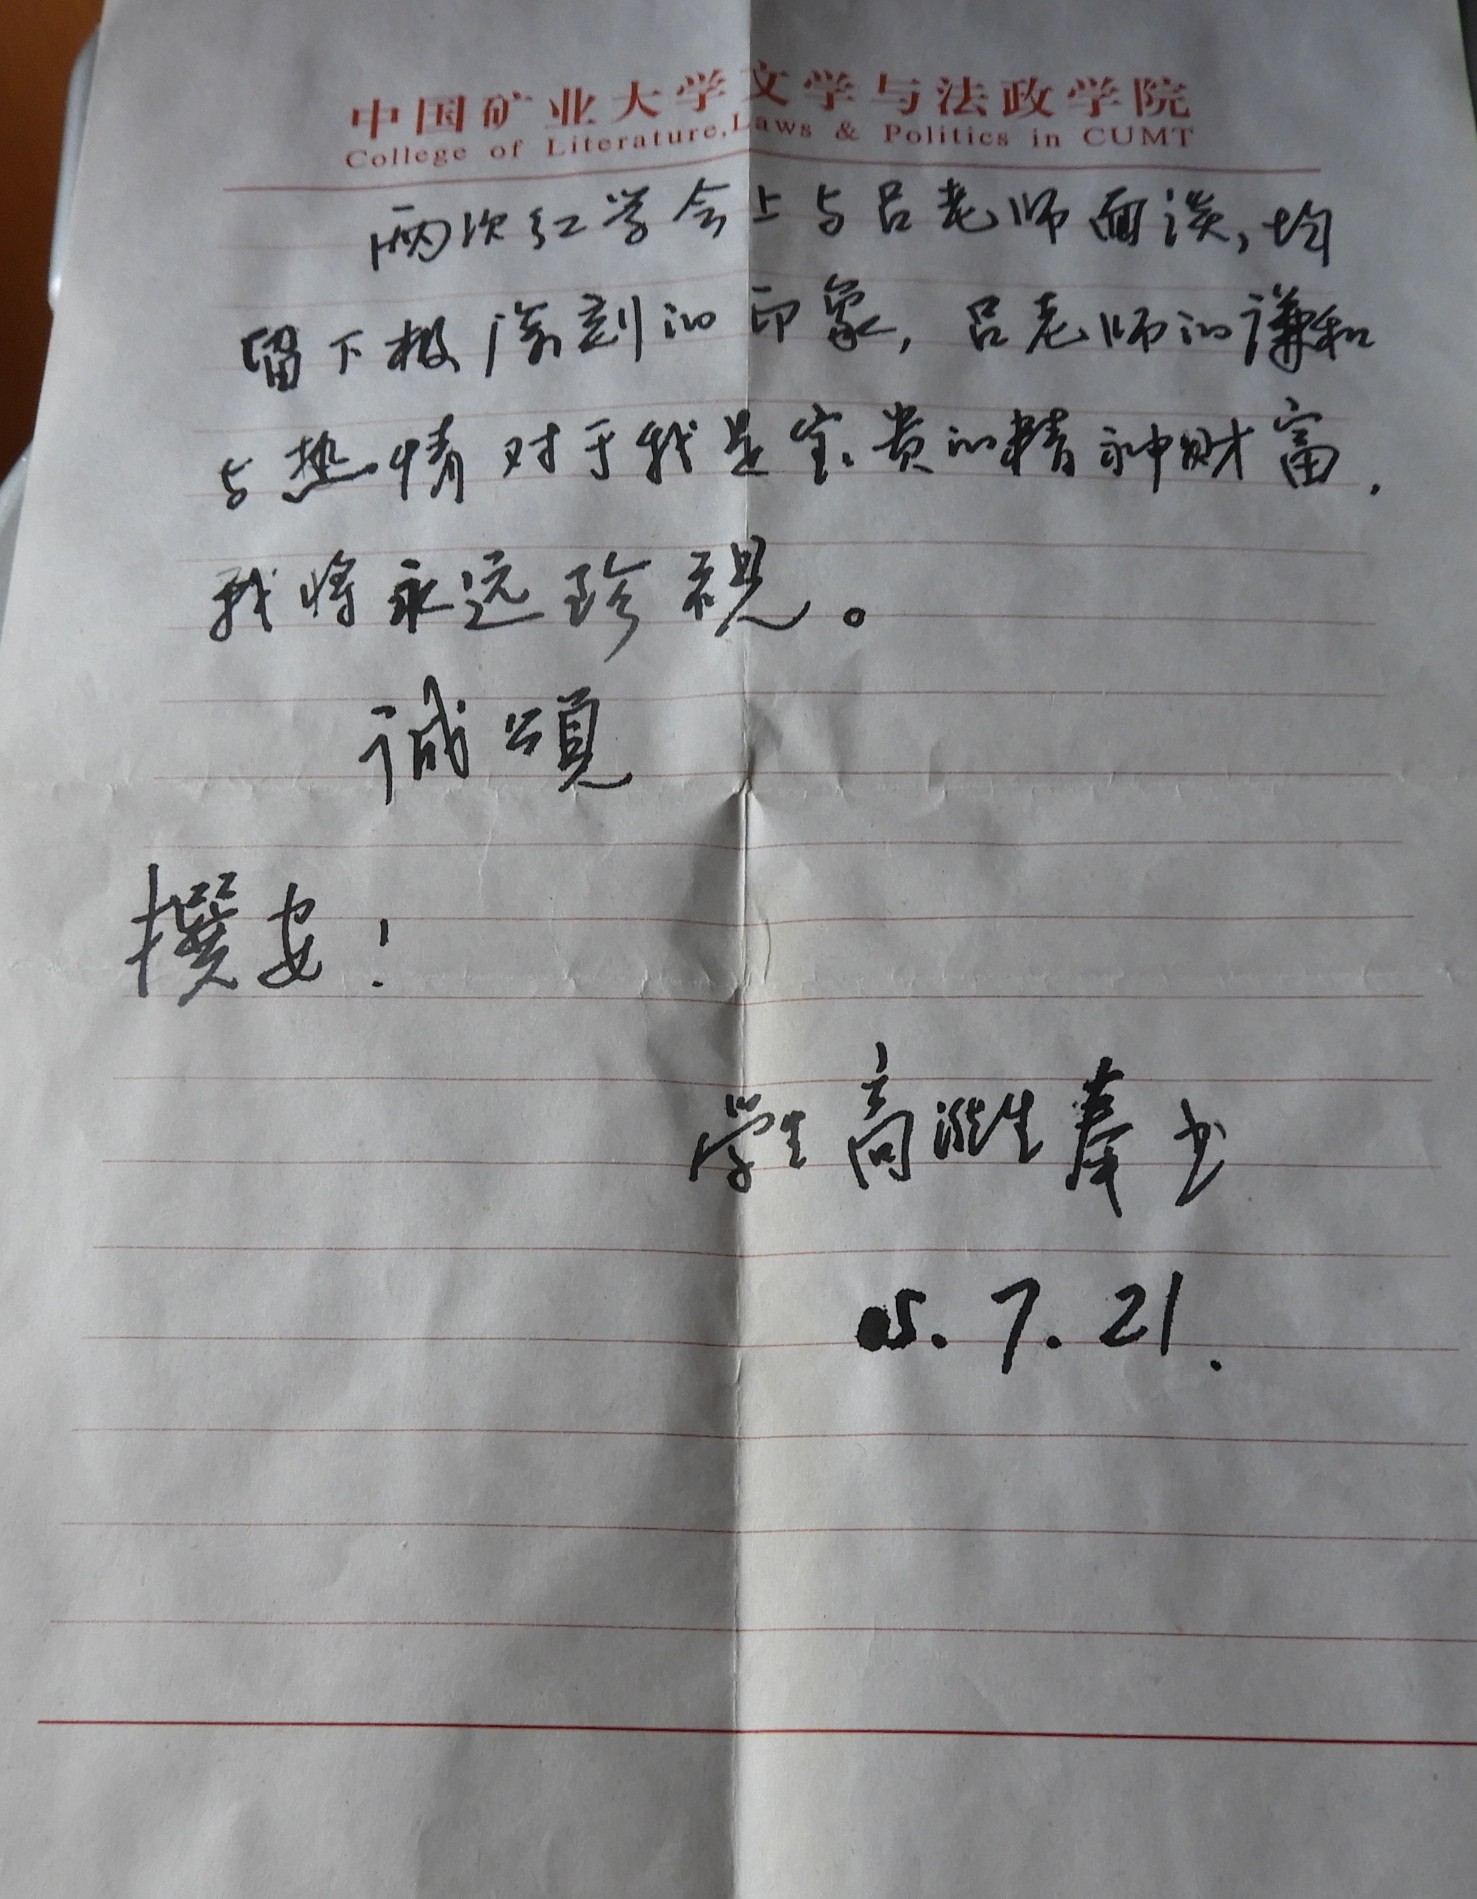 中国矿业大学文学与法政学院
College of Literature,Laws & Politics in CUMT
两次红学会上与吕老师面谈,均
留下极深刻的印象,吕老师的谦和
与热情对于我是宝贵的精神财富,
我将永远珍视。
诚颂
撰安!
学生高淮生奉书
05.7.21.